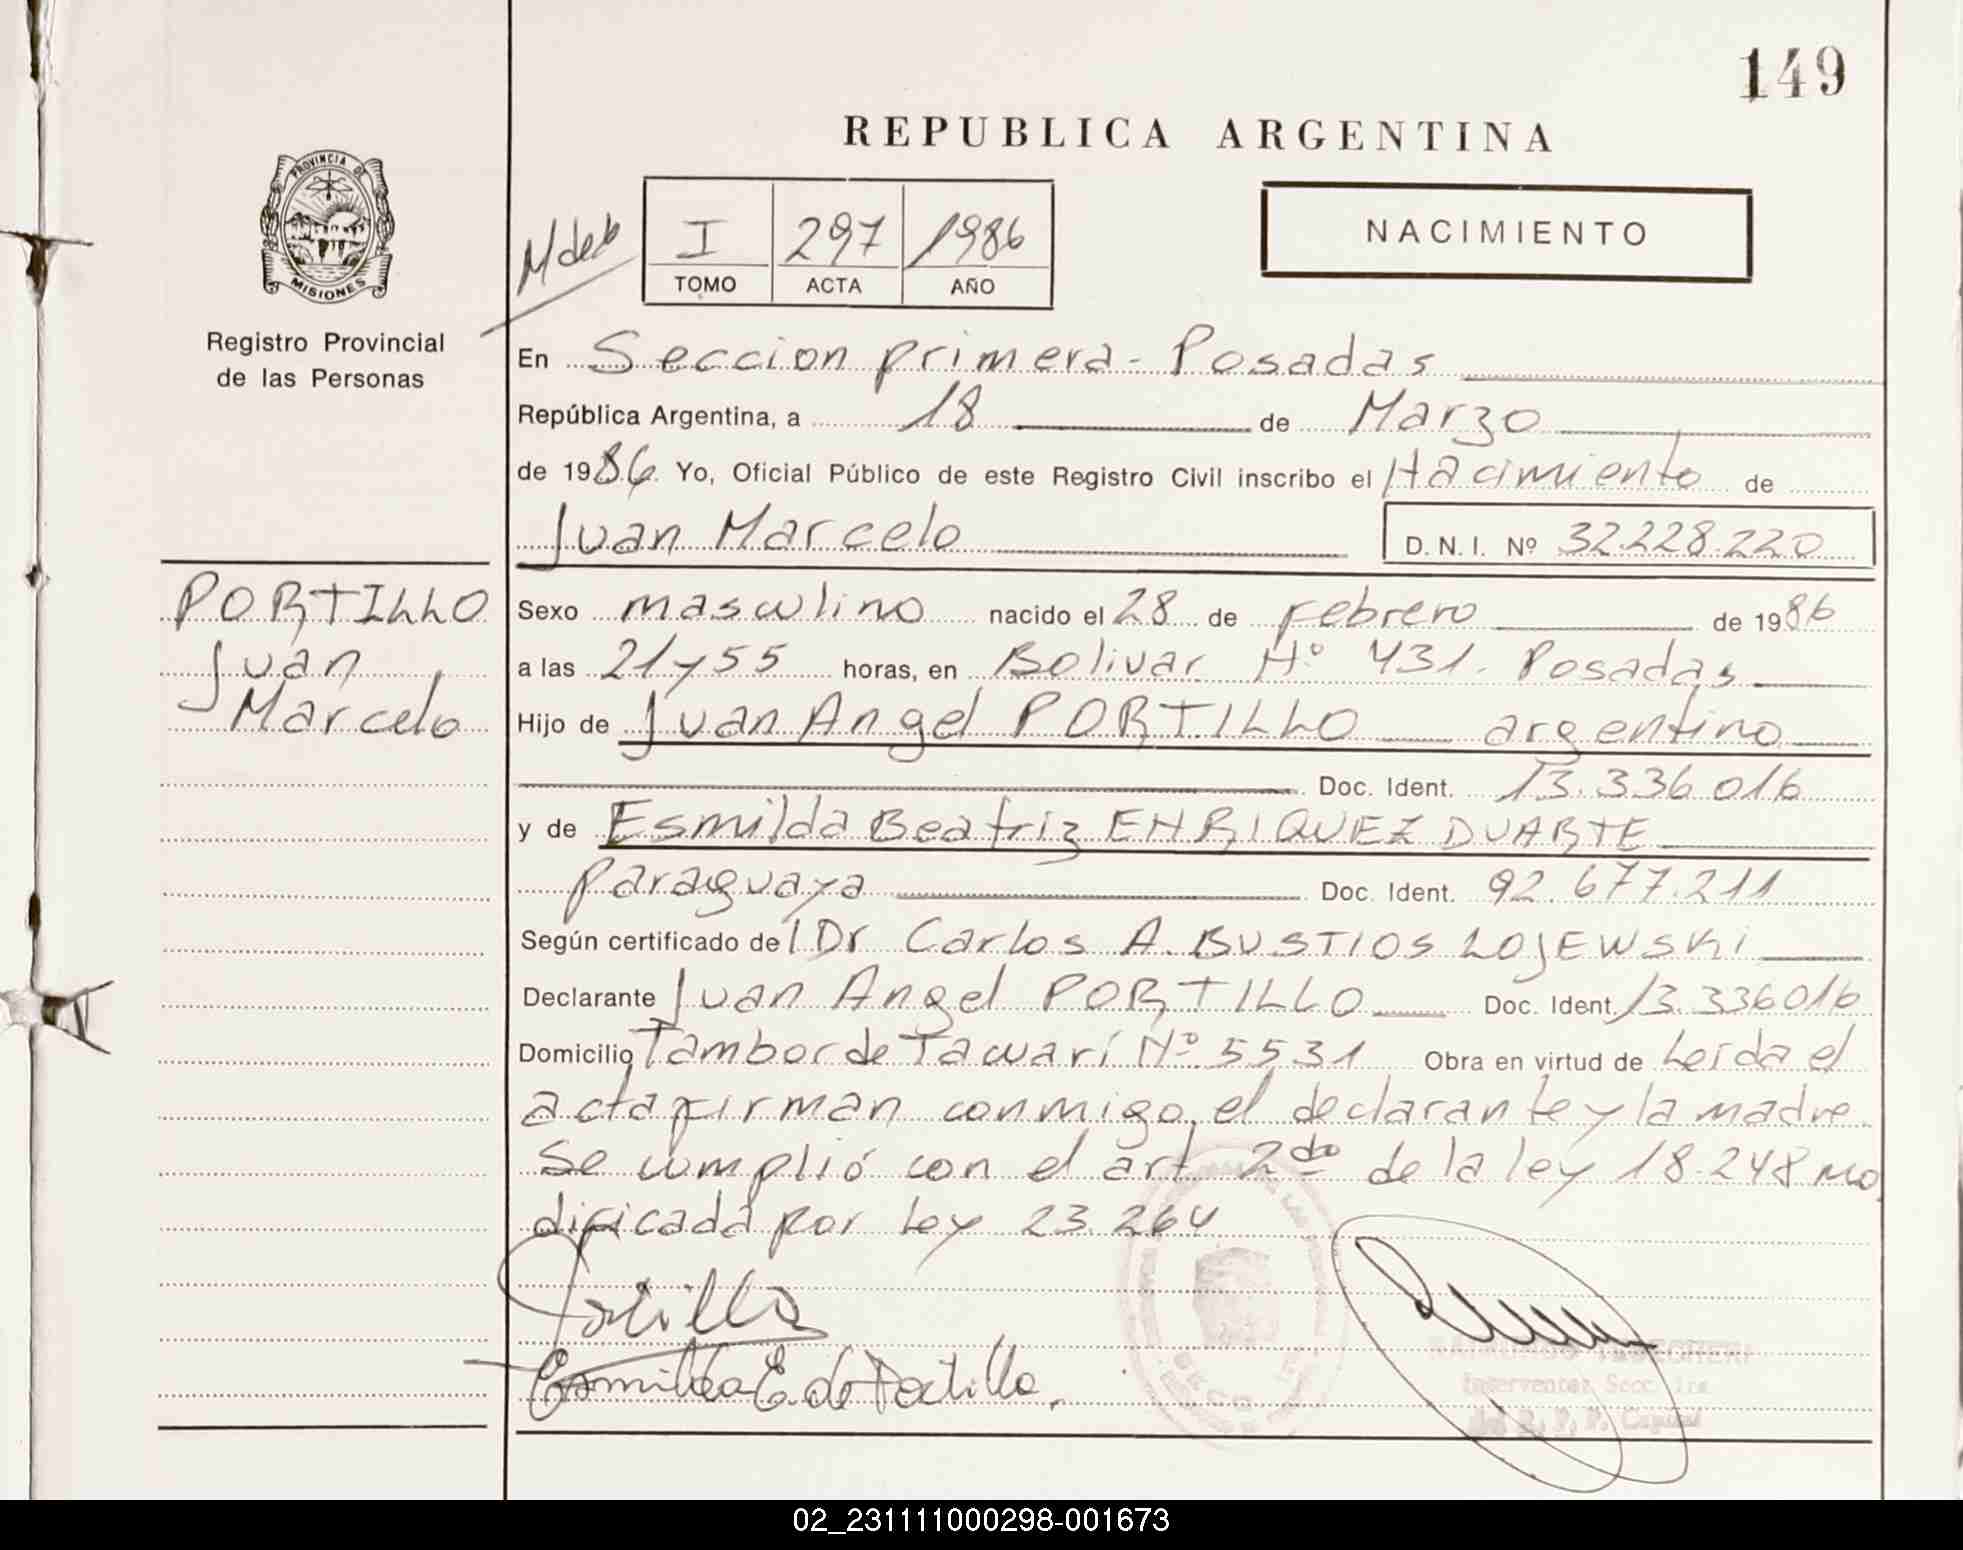 149
REPUBLICA ARGENTINA
PROVINCIA DE
MISIONES
Registro Provincial
de las Personas
I 297 1986
TOMO ACTA AÑO
NACIMIENTO
En Seccion primera - Posadas
República Argentina, a 18 de Marzo
de 1986. Yo, Oficial Público de este Registro Civil inscribo el Nacimiento de
Juan Marcelo D.N.I. Nº 32.228.220
PORTILLO
Juan
Marcelo
Sexo masculino nacido el 28 de Febrero de 1986
a las 21 y 55 horas, en Bolivar Nº 431. Posadas
Hijo de Juan Angel PORTILLO argentino
Doc. Ident. 13.336.016
y de Esmilda Beatriz ENRIQUEZ DUARTE
paraguaya Doc. Ident. 92.677.211
Según certificado del Dr Carlos A. BUSTIOS LOJEWSKi
Declarante Juan Angel PORTILLO Doc. Ident. 13.336016
Domicilio Tambor de Tacuarí Nº 5531 Obra en virtud de Leída el
acta firman conmigo, el declarante y la madre.
Se cumplió con el art 2do de la ley 18.248 mo
dificada por Ley 23.264
Portillo
Esmilda E. de Portillo.
Interventor Secc. 1ra
del R. P. P. Capital
02_231111000298-001673